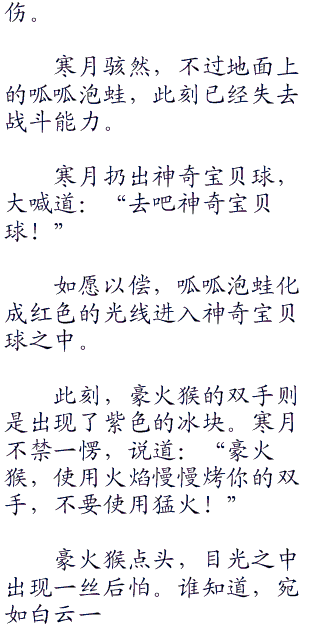 伤。
寒月骇然，不过地面上
的呱呱泡蛙，此刻已经失去
战斗能力。
寒月扔出神奇宝贝球，
大喊道：“去吧神奇宝贝
球！”
如愿以偿，呱呱泡蛙化
成红色的光线进入神奇宝贝
球之中。
此刻，豪火猴的双手则
是出现了紫色的冰块。寒月
不禁一愣，说道：“豪火
猴，使用火焰慢慢烤你的双
手，不要使用猛火！”
豪火猴点头，目光之中
出现一丝后怕。谁知道，宛
如白云一